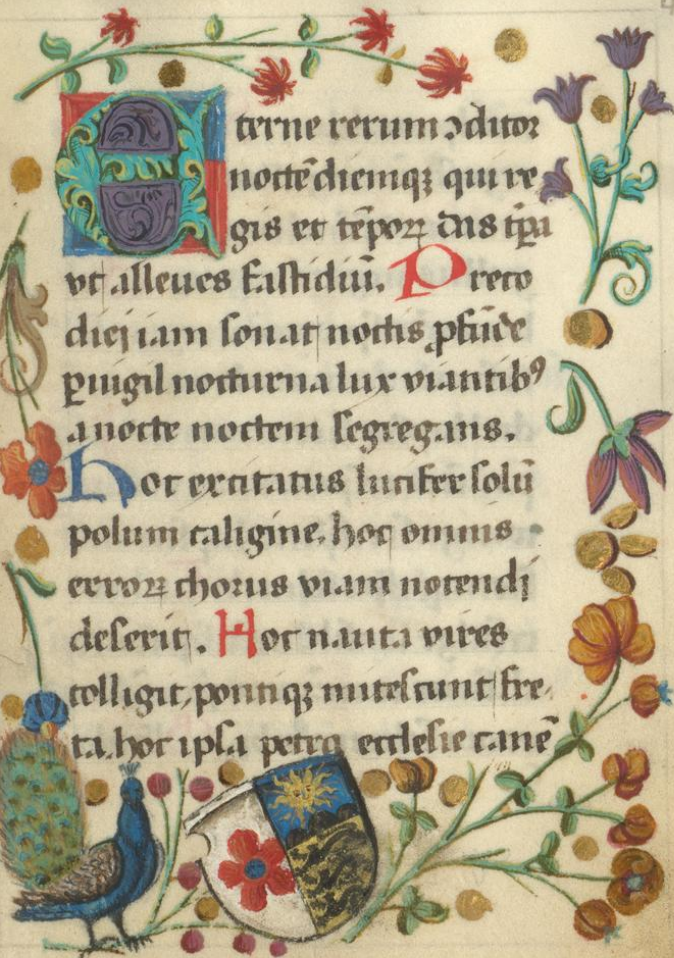 Eterne rerum ↄditor
noctē diemqꝫ qui re
gis et tēpoꝝ das tp̄a
vt alleues fastidiū. Preco
diei iam sonat noctis ꝓfūde
ꝑuigil nocturna lux viantibꝰ
a nocte noctem segregans.
Hoc excitatus lucifer solū
polum caligine, hoc omnis
erroꝝ chorus viam nocendi
deserit. Hoc nauta vires
colligit, pontiqꝫ mitescunt fre
ta. hoc ipsa petra ecclesie canē